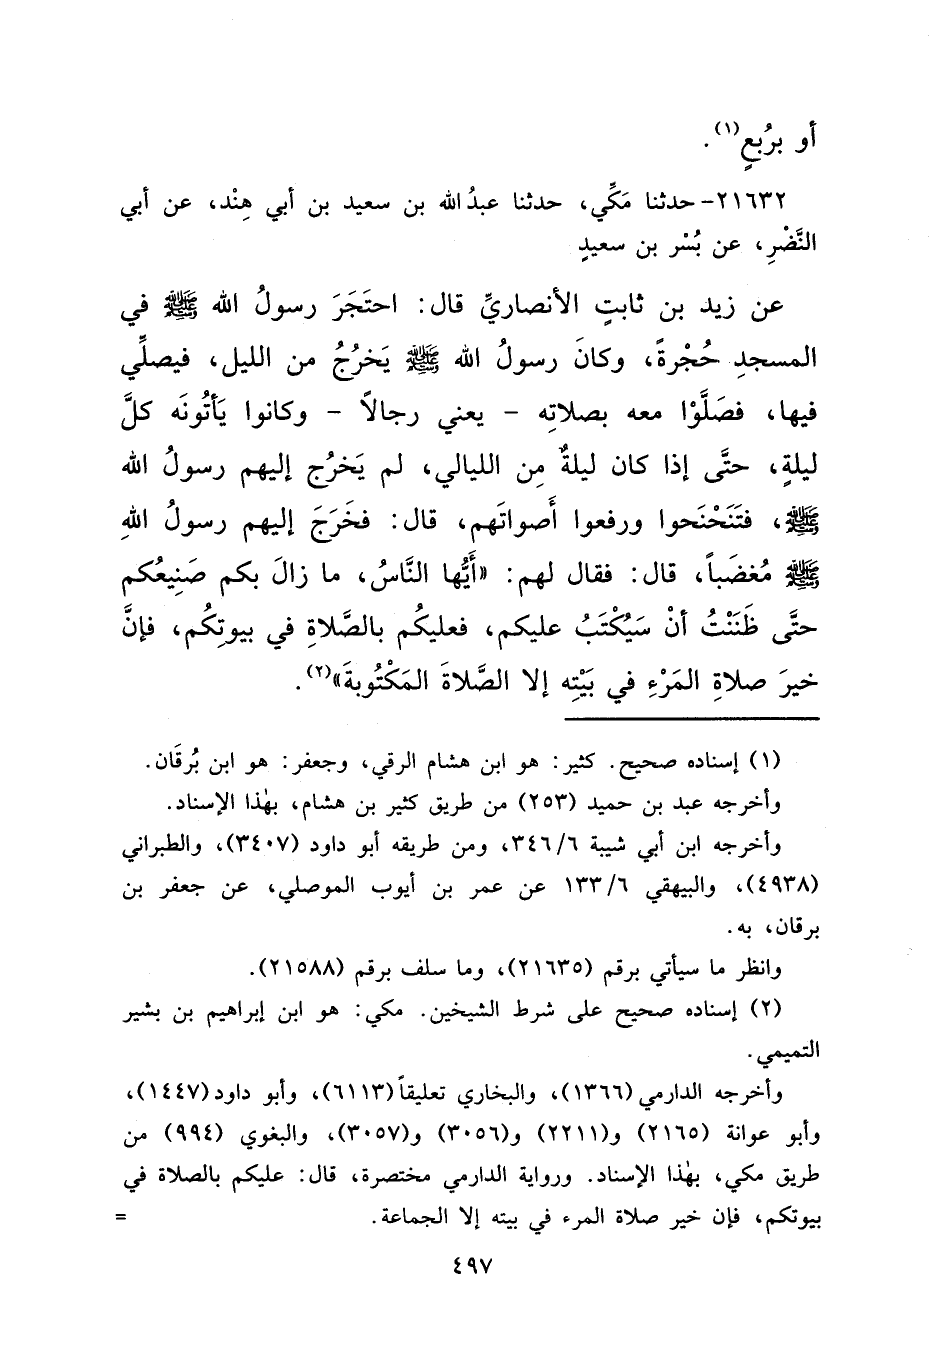 أو بربُعٍ(١).
٢١٦٣٢- حدثنا مَكِّي، حدثنا عبدُ الله بن سعيد بن أبي هِنْد، عن أبي
النَّضْرِ، عن بُسْر بن سعيدٍ
عن زيد بن ثابتٍ الأنصاريِّ قال: احتَجَرَ رسولُ الله ﷺ في
المسجدِ حُجْرةً، وكانَ رسولُ الله ﷺ يَخرُجُ من الليل، فيصلِّي
فيها، فصَلَّوْا معه بصلاتِه - يعني رجالاً - وكانوا يَأتُونَه كلَّ
ليلةٍ، حتَّى إذا كان ليلةٌ مِن الليالي، لم يَخرُج إليهم رسولُ الله
ﷺ، فتَنَحْنَحوا ورفعوا أَصواتَهم، قال: فخَرَجَ إليهم رسولُ اللهِ
ﷺ مُغضَباً، قال: فقال لهم: «أَيُّها النَّاسُ، ما زالَ بكم صَنِيعُكم
حتَّى ظَنَنْتُ أنْ سَيُكْتَبُ عليكم، فعليكُم بالصَّلاةِ في بيوتِكُم، فإنَّ
خيرَ صلاةِ المَرْءِ في بَيْتِه إلا الصَّلاةَ المَكْتُوبةَ»(٢).
(١) إسناده صحيح. كثير: هو ابن هشام الرقي، وجعفر: هو ابن بُرقَان.
وأخرجه عبد بن حميد (٢٥٣) من طريق كثير بن هشام، بهٰذا الإسناد.
وأخرجه ابن أبي شيبة ٣٤٦/٦، ومن طريقه أبو داود (٣٤٠٧)، والطبراني
(٤٩٣٨)، والبيهقي ١٣٣/٦ عن عمر بن أيوب الموصلي، عن جعفر بن
برقان، به.
وانظر ما سيأتي برقم (٢١٦٣٥)، وما سلف برقم (٢١٥٨٨).
(٢) إسناده صحيح على شرط الشيخين. مكي: هو ابن إبراهيم بن بشير
التميمي.
وأخرجه الدارمي (١٣٦٦)، والبخاري تعليقاً (٦١١٣)، وأبو داود (١٤٤٧)،
وأبو عوانة (٢١٦٥) و(٢٢١١) و(٣٠٥٦) و(٣٠٥٧)، والبغوي (٩٩٤) من
طريق مكي، بهٰذا الإسناد. ورواية الدارمي مختصرة، قال: عليكم بالصلاة في
بيوتكم، فإن خير صلاة المرء في بيته إلا الجماعة. =
٤٩٧